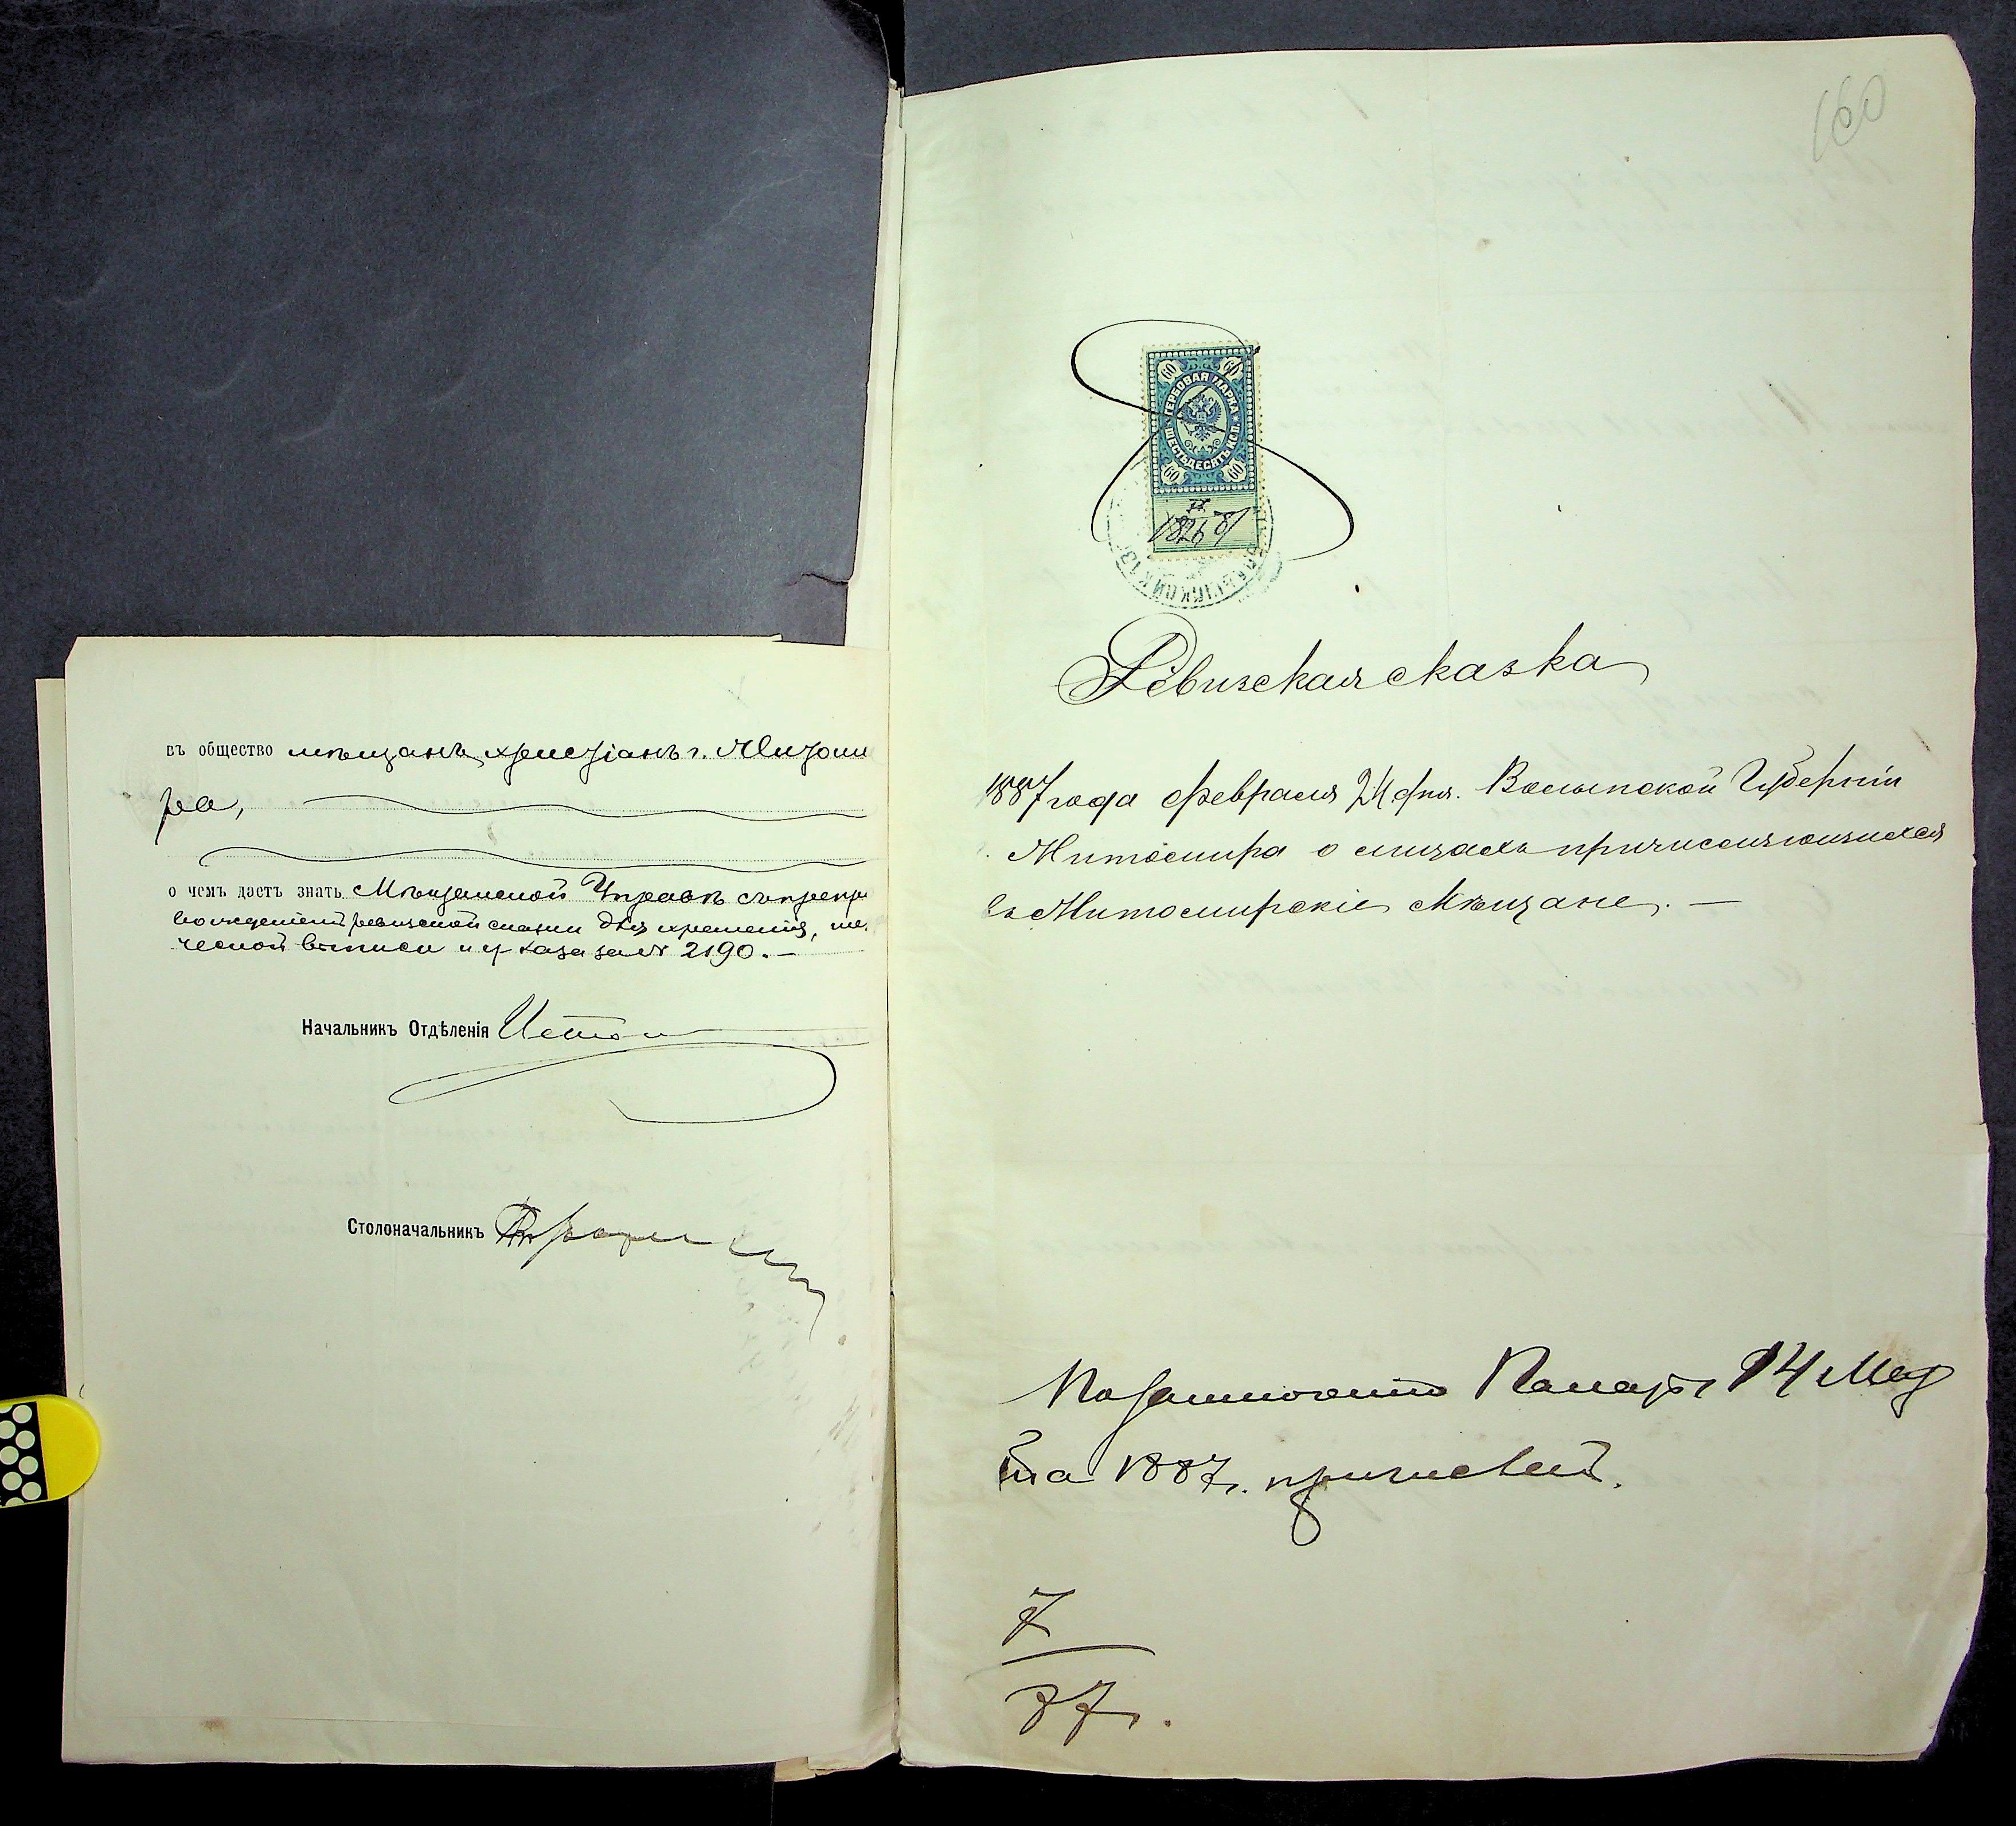 въ общество мѣщанъ христіанъ г. Житоми
ра,
о чемъ даетъ знать Мѣщанской Управѣ съ препро
вожденіемъ ревизской сказки для храненія,
выписи и указа за № 2190. —
Начальникъ Отдѣленія
Столоначальникъ
160
60 60
ГЕРБОВАЯ МАРКА
ШЕСТЬДЕСЯТЪ КОП.
60 60
Ревизская сказка
1887 года февраля 24 дня. Волынской Губерніи
Житомира о лицахъ причисляющихся
въ Житомирскіе Мѣщане. —
Палаты 14 Мар
та 1887 г.
7
87 г.